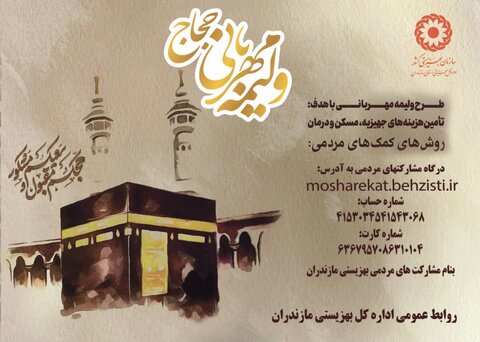 ولیمه مهربانی حجاج
سازمان بهزیستی کشور
طرح ولیمه مهربانی با هدف:
تأمین هزینه‌های جهیزیه، مسکن و درمان
روش‌های کمک‌های مردمی:
درگاه مشارکتهای مردمی به آدرس:
mosharekat.behzisti.ir
شماره حساب:
۴۱۵۳۰۳۴۵۴۱۵۴۳۰۶۸
شماره کارت:
۶۳۶۷۹۵۷۰۸۶۳۱۰۱۰۴
بنام مشارکت های مردمی بهزیستی مازندران
حجکم مقبول و سعیکم مشکور
روابط عمومی اداره کل بهزیستی مازندران